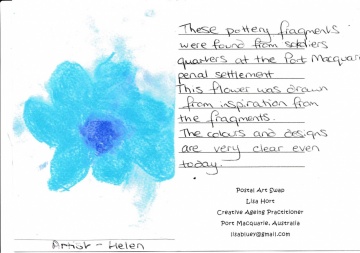 These pottery fragments
were found from soldiers
quarters at the Port Macquarie
penal settlement
This flower was drawn
from inspiration from
the fragments.
The colours and designs
are very clear even
today.
Postal Art Swap
Lisa Hort
Creative Ageing Practitioner
Port Macquarie, Australia
lisabluey@gmail.com
Artist - Helen